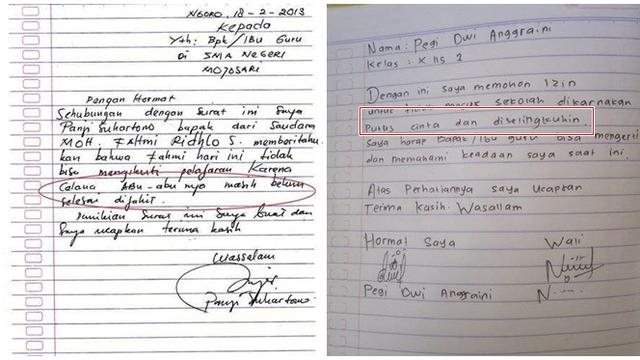 NGORO, 18-2-2013
Kepada
Yth: Bpk/Ibu Guru
Di SMA NEGERI
MOJOSARI
Dengan Hormat
Sehubungan dengan surat ini saya
Panji Suhartono bapak dari saudara
MOH. FAHMI RIDHLO S. memberitahu
kan bahwa Fahmi hari ini tidak
bisa mengikuti pelajaran Karena
Celana Abu-abu nya masih belum
selesai dijahit.
Demikian Surat ini Saya buat dan
Saya ucapkan terima kasih
Wassalam
Panji Suhartono
Nama: Pegi Dwi Anggraini
Kelas: X IIS 2
Dengan ini saya memohon Izin
untuk tidak masuk sekolah dikarnakan
Putus cinta dan diselingkuhin.
Saya harap Bapak/Ibu guru bisa mengerti
dan memahami keadaan saya saat ini.
Atas Perhatiannya saya Ucapkan
Terima kasih. Wasallam
Hormat Saya Wali
Pegi Dwi Anggraini N....